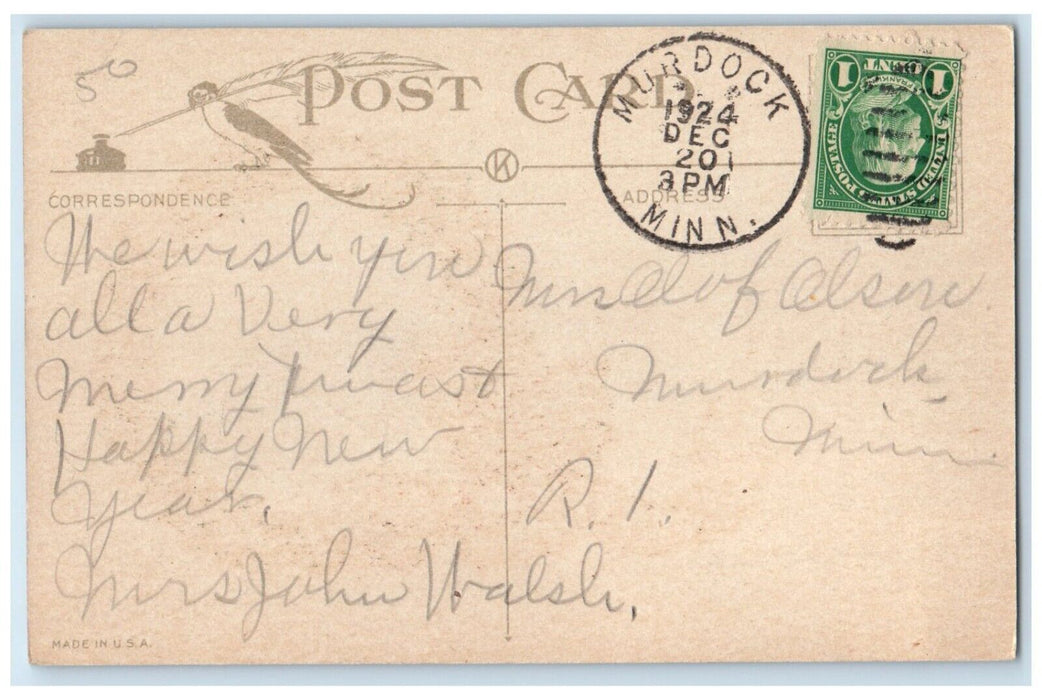 50
POST CARD
MURDOCK
1924
DEC
20
3 PM
MINN.
1 CENT 1
FRANKLIN
UNITED STATES POSTAGE
CORRESPONDENCE
ADDRESS
We wish you
all a Very
Merry Xmas
Happy New
Year,
Mrs John Walsh,
Mrs Olof Olson
Murdock
Minn.
R. 1.
MADE IN U.S.A.